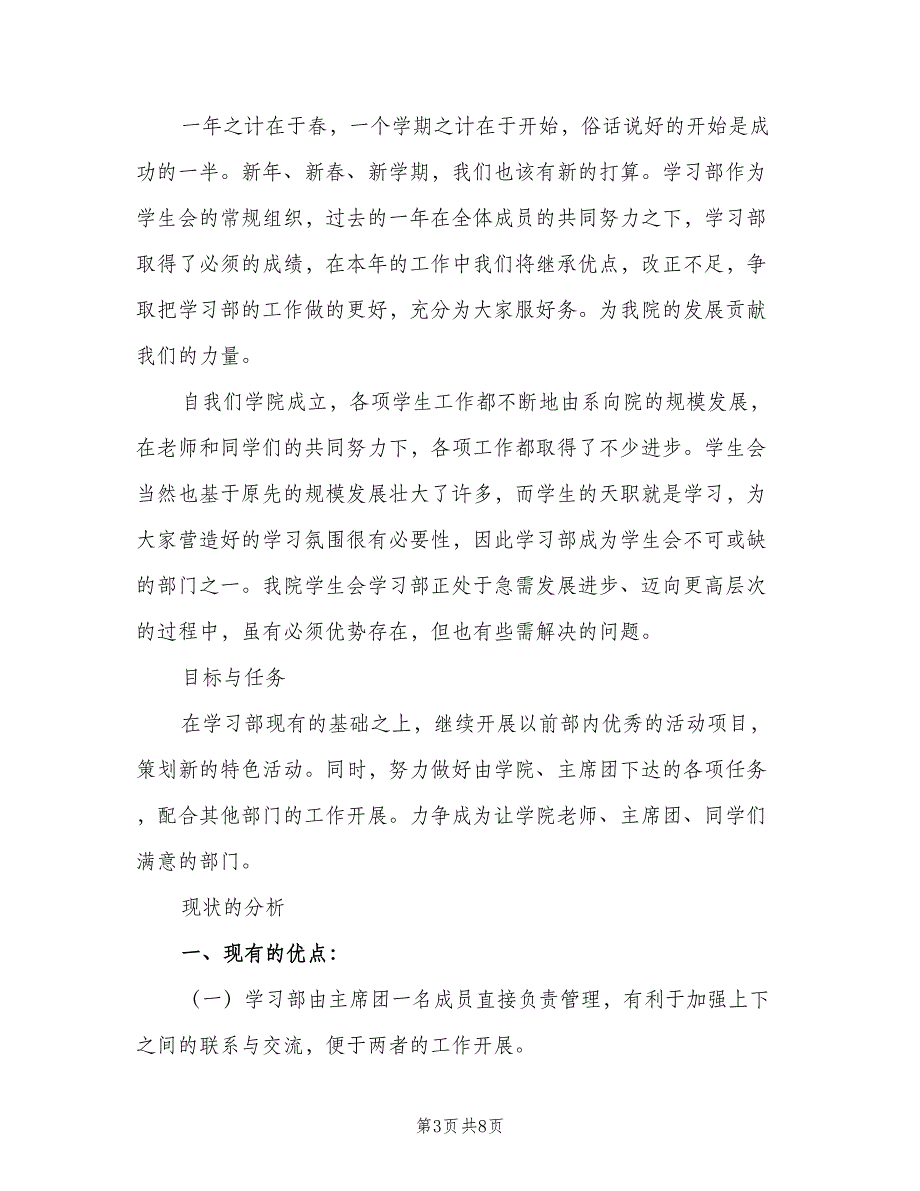 一年之计在于春，一个学期之计在于开始，俗话说好的开始是成
功的一半。新年、新春、新学期，我们也该有新的打算。学习部作为
学生会的常规组织，过去的一年在全体成员的共同努力之下，学习部
取得了必须的成绩，在本年的工作中我们将继承优点，改正不足，争
取把学习部的工作做的更好，充分为大家服好务。为我院的发展贡献
我们的力量。
自我们学院成立，各项学生工作都不断地由系向院的规模发展，
在老师和同学们的共同努力下，各项工作都取得了不少进步。学生会
当然也基于原先的规模发展壮大了许多，而学生的天职就是学习，为
大家营造好的学习氛围很有必要性，因此学习部成为学生会不可或缺
的部门之一。我院学生会学习部正处于急需发展进步、迈向更高层次
的过程中，虽有必须优势存在，但也有些需解决的问题。
目标与任务
在学习部现有的基础之上，继续开展以前部内优秀的活动项目，
策划新的特色活动。同时，努力做好由学院、主席团下达的各项任务
，配合其他部门的工作开展。力争成为让学院老师、主席团、同学们
满意的部门。
现状的分析
一、现有的优点：
（一）学习部由主席团一名成员直接负责管理，有利于加强上下
之间的联系与交流，便于两者的工作开展。
第3页 共8页